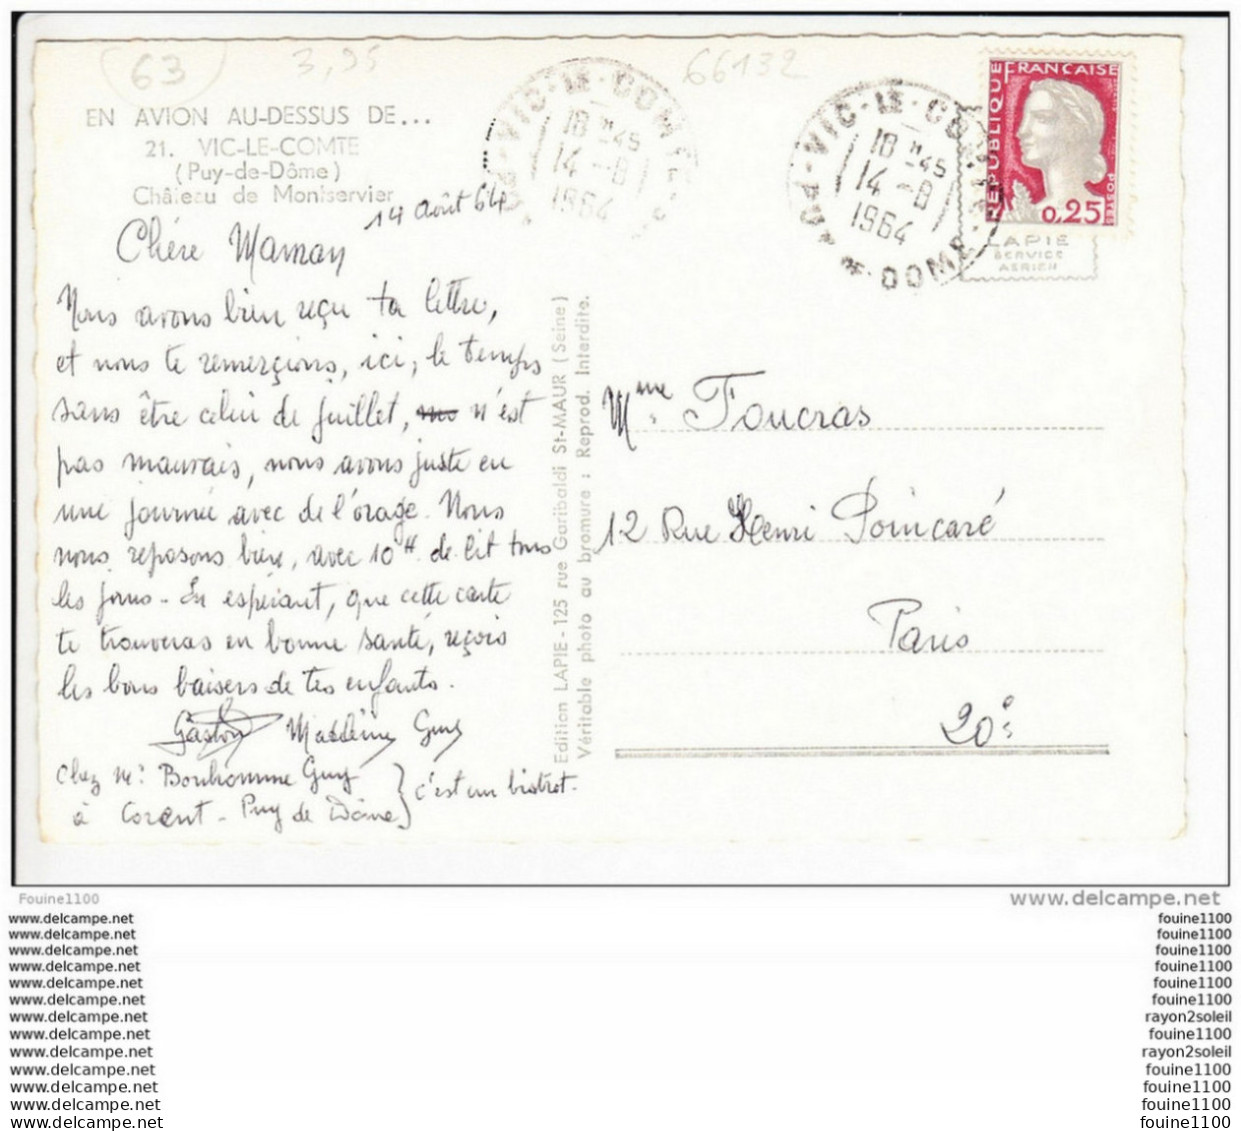 63
3,95
66132
EN AVION AU-DESSUS DE...
21. VIC-LE-COMTE
(Puy-de-Dôme)
Château de Montservier
14 août 64
Chère Maman
Nous avons bien reçu ta lettre,
et nous te remerçions, ici, le temps
sans être celui de Juillet, n'est
pas mauvais, nous avons juste eu
une journée avec de l'orage. Nous
nous reposons bien, avec 10H de lit tous
les jours - En espérant, que cette carte
te trouveras en bonne santé, reçois
les bons baisers de tes enfants.
Gaston Madeleine Guy
Chez Mr Bonhomme Guy
à Corent - Puy de Dôme } c'est un bistrot.
Edition LAPIE - 125 rue Garibaldi St-MAUR (Seine)
Véritable photo au bromure : Reprod. Interdite.
VIC-LE-COMTE
18 H 45
14 -8
1964
VIC-LE-COMTE
18 H 45
14 -8
1964
PUY-DE-DOME
REPUBLIQUE FRANÇAISE
POSTES
0,25
LAPIE
SERVICE
AERIEN
Mme Foucras
12 Rue Henri Poincaré
Paris
20e
Fouine1100
www.delcampe.net
www.delcampe.net
fouine1100
www.delcampe.net
fouine1100
www.delcampe.net
fouine1100
www.delcampe.net
fouine1100
www.delcampe.net
fouine1100
www.delcampe.net
fouine1100
www.delcampe.net
rayon2soleil
www.delcampe.net
fouine1100
www.delcampe.net
rayon2soleil
www.delcampe.net
fouine1100
www.delcampe.net
fouine1100
www.delcampe.net
fouine1100
www.delcampe.net
fouine1100